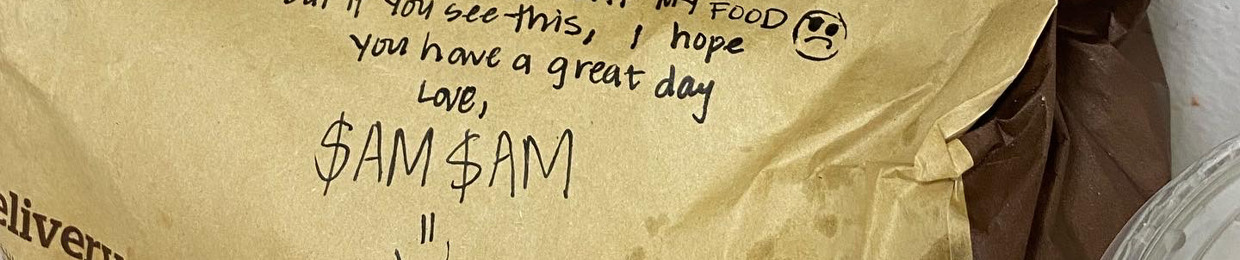 MY FOOD
if you see this, I hope
you have a great day
Love,
$AM $AM
elivery